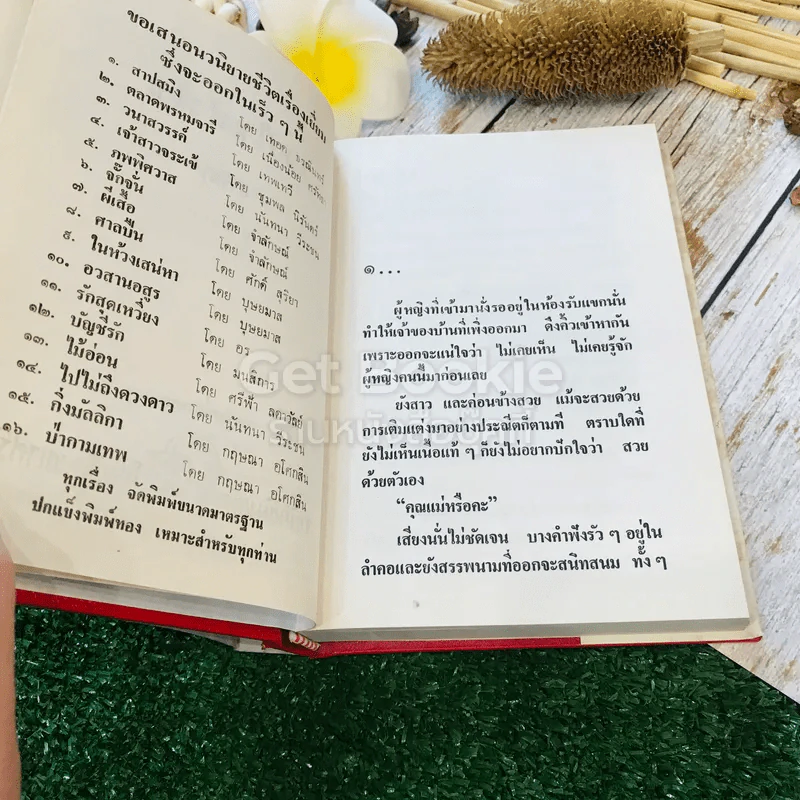 ขอเสนอนวนิยายชีวิตเรื่องเยี่ยม
ซึ่งจะออกในเร็ว ๆ นี้
๑. สาปสมิง โดย เทอด ธรณินทร์
๒. ตลาดพรหมจารี โดย เนื่องน้อย ศรัทธา
๓. วนาสวรรค์ โดย เทพเทวี
๔. เจ้าสาวจระเข้ โดย ชุมพล นิรันดร์
๕. ภพพิศวาส โดย นันทนา วีระชน
๖. จั๊กจั่น โดย จำลักษณ์
๗. ผีเสื้อ โดย จำลักษณ์
๘. ศาลปืน โดย ศักดิ์ สุริยา
๙. ในห้วงเสน่หา โดย บุษยมาส
๑๐. อวสานอสูร โดย บุษยมาส
๑๑. รักสุดเหวี่ยง โดย อร
๑๒. บัญชีรัก โดย มนสิการ
๑๓. ไม้อ่อน โดย ศรีฟ้า ลดาวัลย์
๑๔. ไปไม่ถึงดวงดาว โดย นันทนา วีระชน
๑๕. กิ่งมัลลิกา โดย กฤษณา อโศกสิน
๑๖. ป่ากามเทพ โดย กฤษณา อโศกสิน
ทุกเรื่อง จัดพิมพ์ขนาดมาตรฐาน
ปกแข็งพิมพ์ทอง เหมาะสำหรับทุกท่าน
๑...
ผู้หญิงที่เข้ามานั่งรออยู่ในห้องรับแขกนั่น
ทำให้เจ้าของบ้านที่พึ่งออกมา ดึงคิ้วเข้าหากัน
เพราะออกจะแน่ใจว่า ไม่เคยเห็น ไม่เคยรู้จัก
ผู้หญิงคนนี้มาก่อนเลย
ยังสาว และค่อนข้างสวย แม้จะสวยด้วย
การเติมแต่งมาอย่างประณีตก็ตามที ตราบใดที่
ยังไม่เห็นเนื้อแท้ ๆ ก็ยังไม่อยากปักใจว่า สวย
ด้วยตัวเอง
“คุณแม่หรือคะ”
เสียงนั่นไม่ชัดเจน บางคำฟังรัว ๆ อยู่ใน
ลำคอและยังสรรพนามที่ออกจะสนิทสนม ทั้ง ๆ
Get Bookie